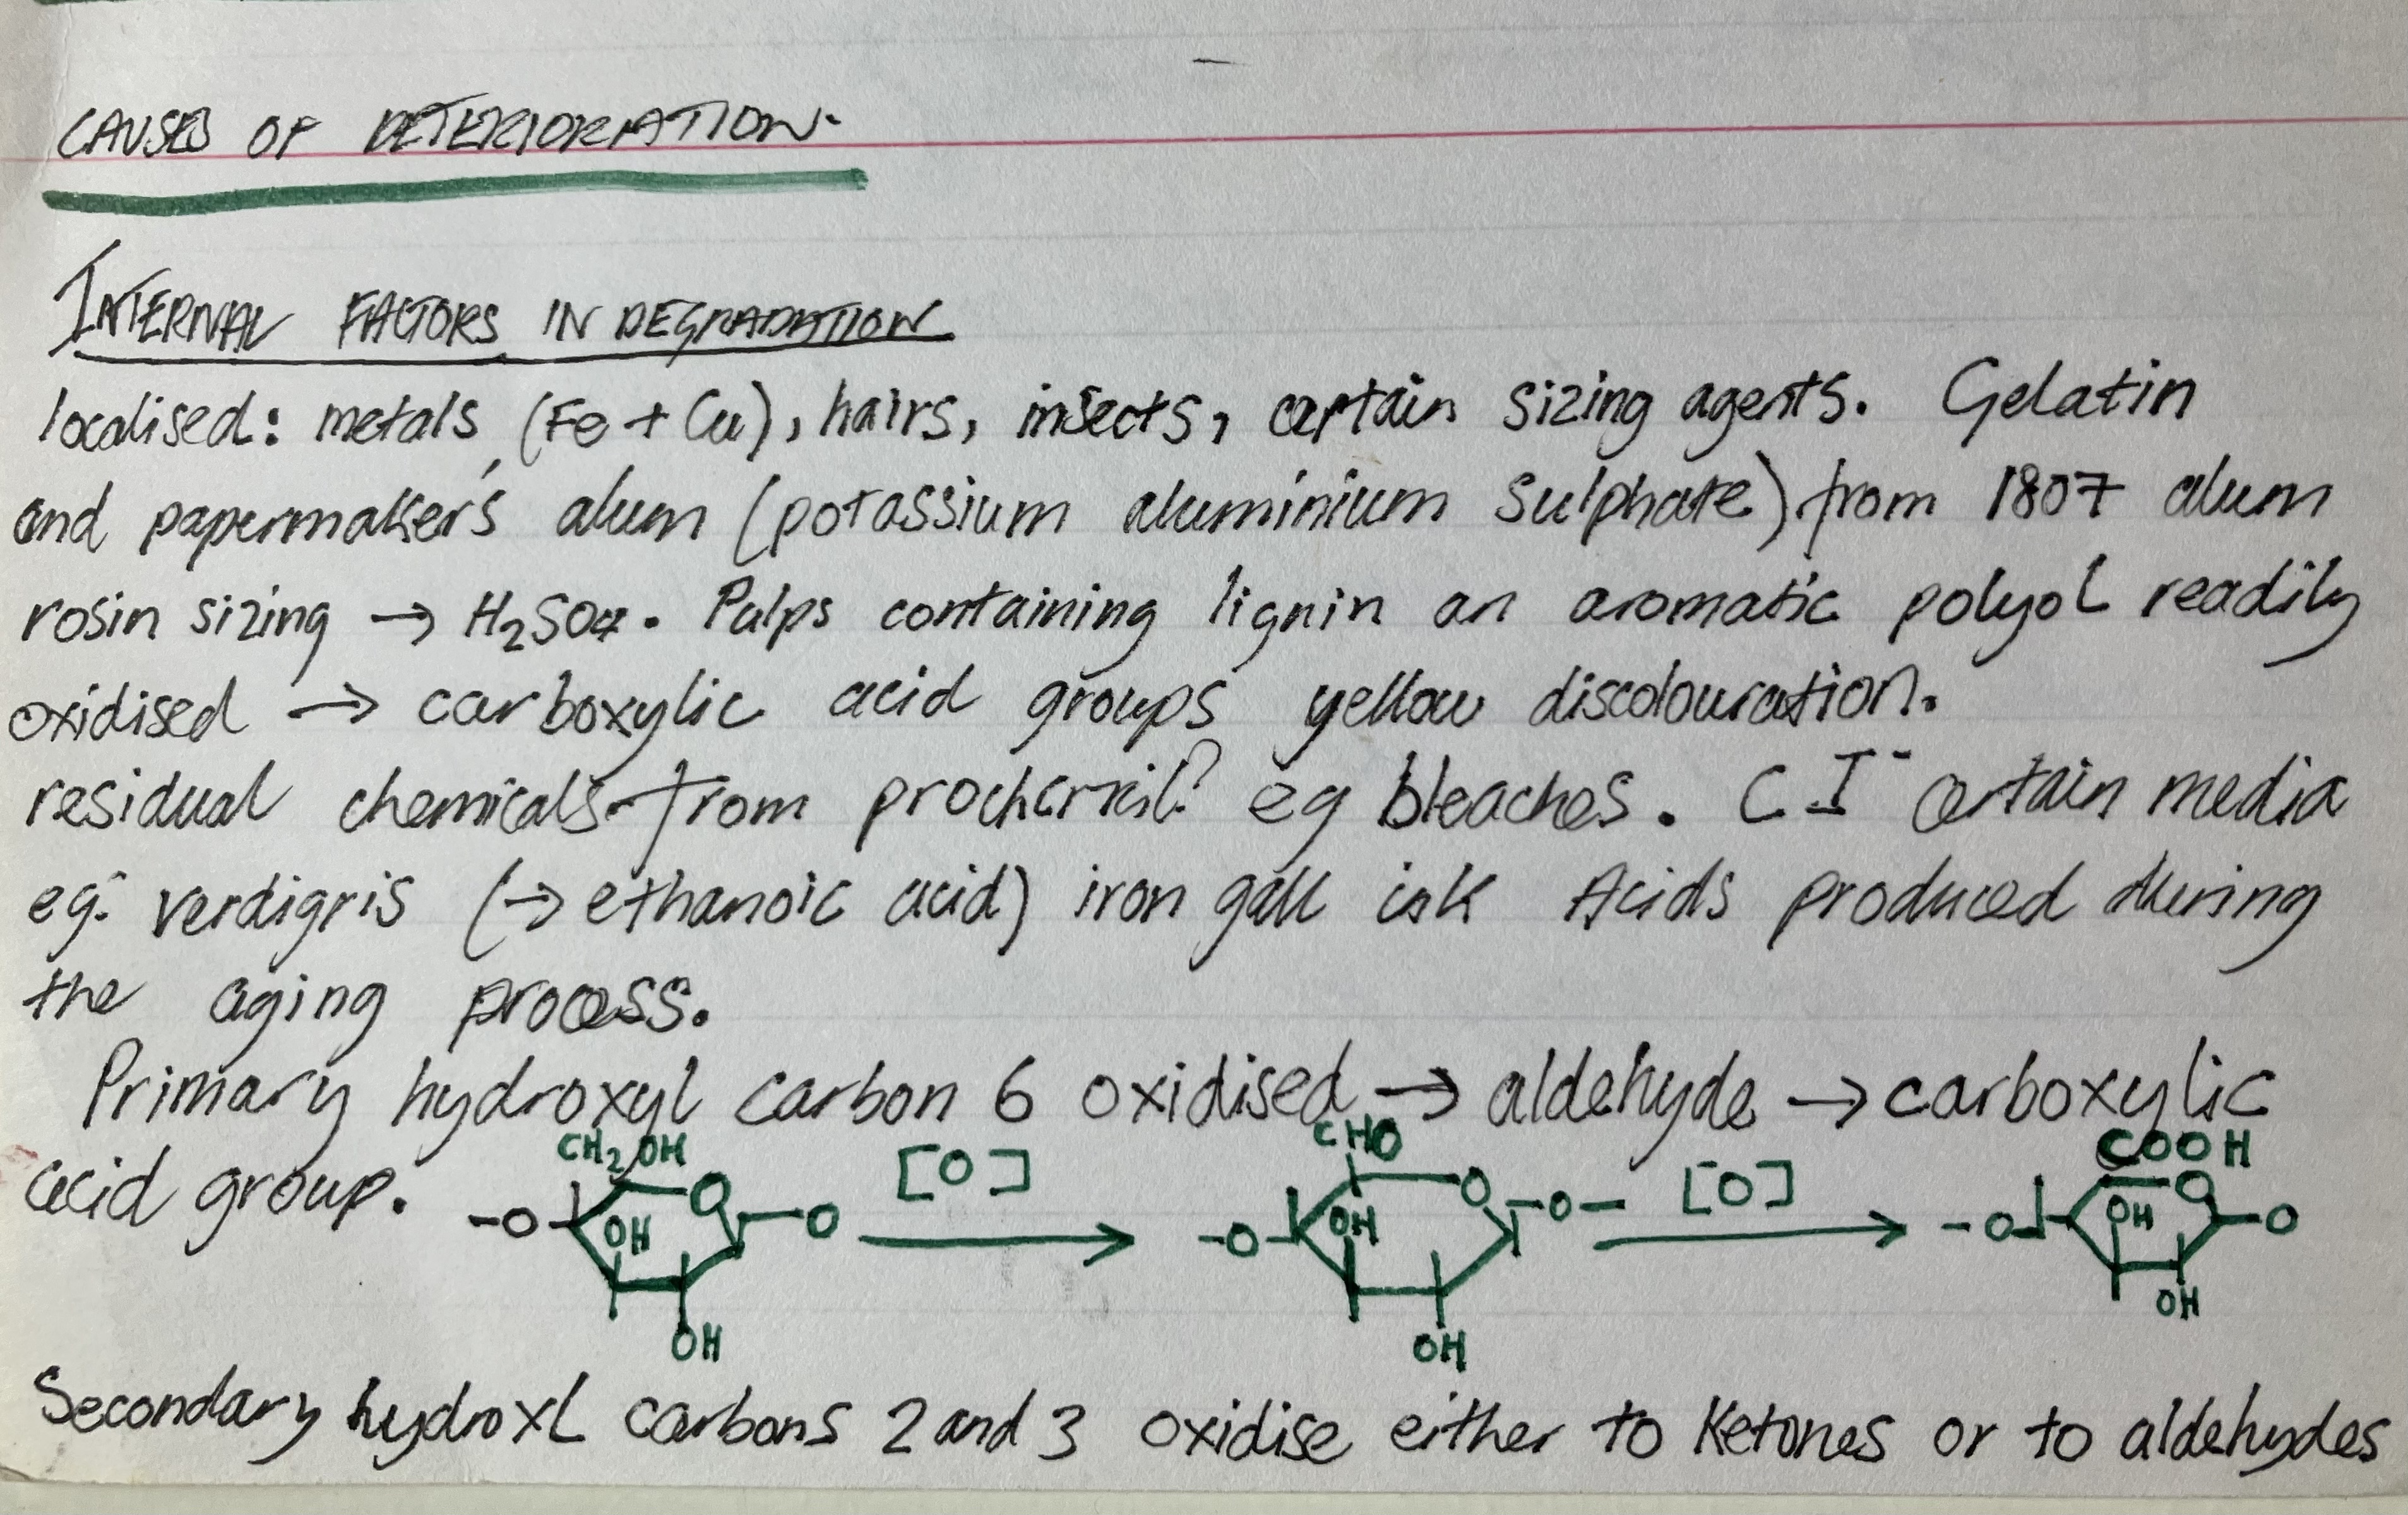 CAUSES OF DETERIORATION.
INTERNAL FACTORS IN DEGRADATION
localised: metals (Fe + Cu), hairs, insects, certain sizing agents. Gelatin
and papermaker's alum (potassium aluminium sulphate) from 1807 alum
rosin sizing → H₂SO₄. Pulps containing lignin an aromatic polyol readily
oxidised → carboxylic acid groups yellow discolouration.
residual chemicals from eg bleaches. C I⁻ certain media
eg. verdigris (→ ethanoic acid) iron gall ink Acids produced during
the aging process.
Primary hydroxyl carbon 6 oxidised → aldehyde → carboxylic
acid group.
CH₂OH CHO COOH
[O] [O]
-O- OH O O -O- OH O -O- -O OH O O
OH OH OH
Secondary hydroxL carbons 2 and 3 oxidise either to Ketones or to aldehydes